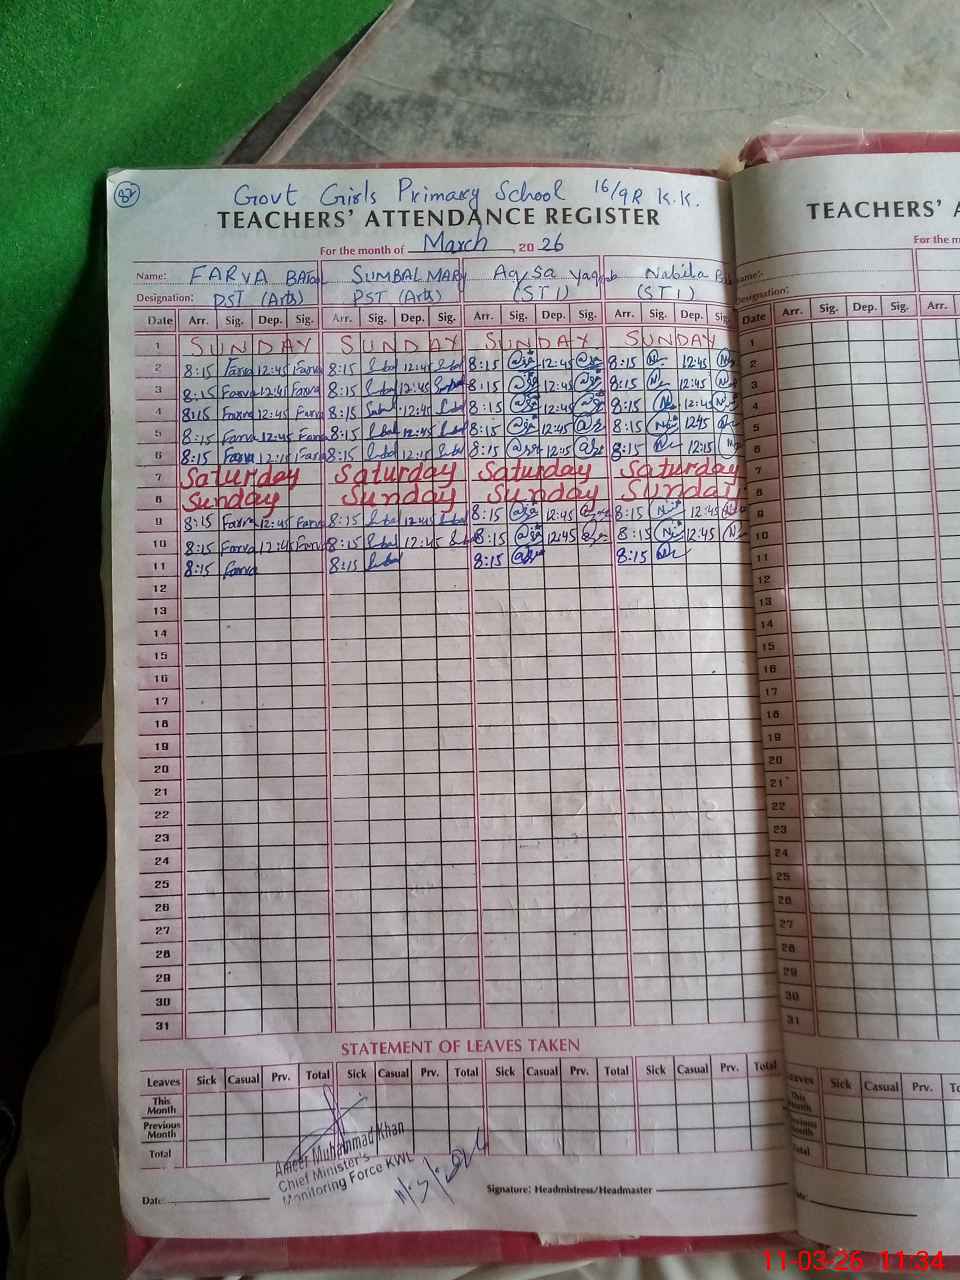 82
Govt Girls Primary School 16/9R K.K.
TEACHERS' ATTENDANCE REGISTER
For the month of March, 2026
Name: FARVA Batool SUMBAL MARY Aqsa Yaqoob Nabila
Designation: PST (Arts) PST (Arts) (STI) (STI)
Date Arr. Sig. Dep. Sig. Arr. Sig. Dep. Sig. Arr. Sig. Dep. Sig. Arr. Sig. Dep. Sig.
1 SUNDAY SUNDAY SUNDAY SUNDAY
2 8:15 Farva 12:45 Farva 8:15 12:45 8:15 12:45 8:15 12:45
3 8:15 Farva 12:45 Farva 8:15 12:45 8:15 12:45 8:15 12:45
4 8:15 Farva 12:45 Farva 8:15 12:45 8:15 12:45 8:15 12:45
5 8:15 Farva 12:45 Farva 8:15 12:45 8:15 12:45 8:15 12:45
6 8:15 Farva 12:15 Farva 8:15 12:15 8:15 12:15 8:15 12:15
7 Saturday Saturday Saturday Saturday
8 Sunday Sunday Sunday Sunday
9 8:15 Farva 12:45 Farva 8:15 12:45 8:15 12:45 8:15 12:45
10 8:15 Farva 12:45 Farva 8:15 12:45 8:15 12:45 8:15 12:45
11 8:15 Farva 8:15 8:15 8:15
12
13
14
15
16
17
18
19
20
21
22
23
24
25
26
27
28
29
30
31
STATEMENT OF LEAVES TAKEN
Leaves Sick Casual Prv. Total Sick Casual Prv. Total Sick Casual Prv. Total Sick Casual Prv. Total
This Month
Previous Month
Total
Ameer Muhammad Khan
Chief Minister's
Monitoring Force KWL
Date:
Signature: Headmistress/Headmaster
TEACHERS' A
For the m
Name:
Designation:
Date Arr. Sig. Dep. Sig. Arr.
1
2
3
4
5
6
7
8
9
10
11
12
13
14
15
16
17
18
19
20
21
22
23
24
25
26
27
28
29
30
31
Leaves Sick Casual Prv. Total
11-03-26 11:34